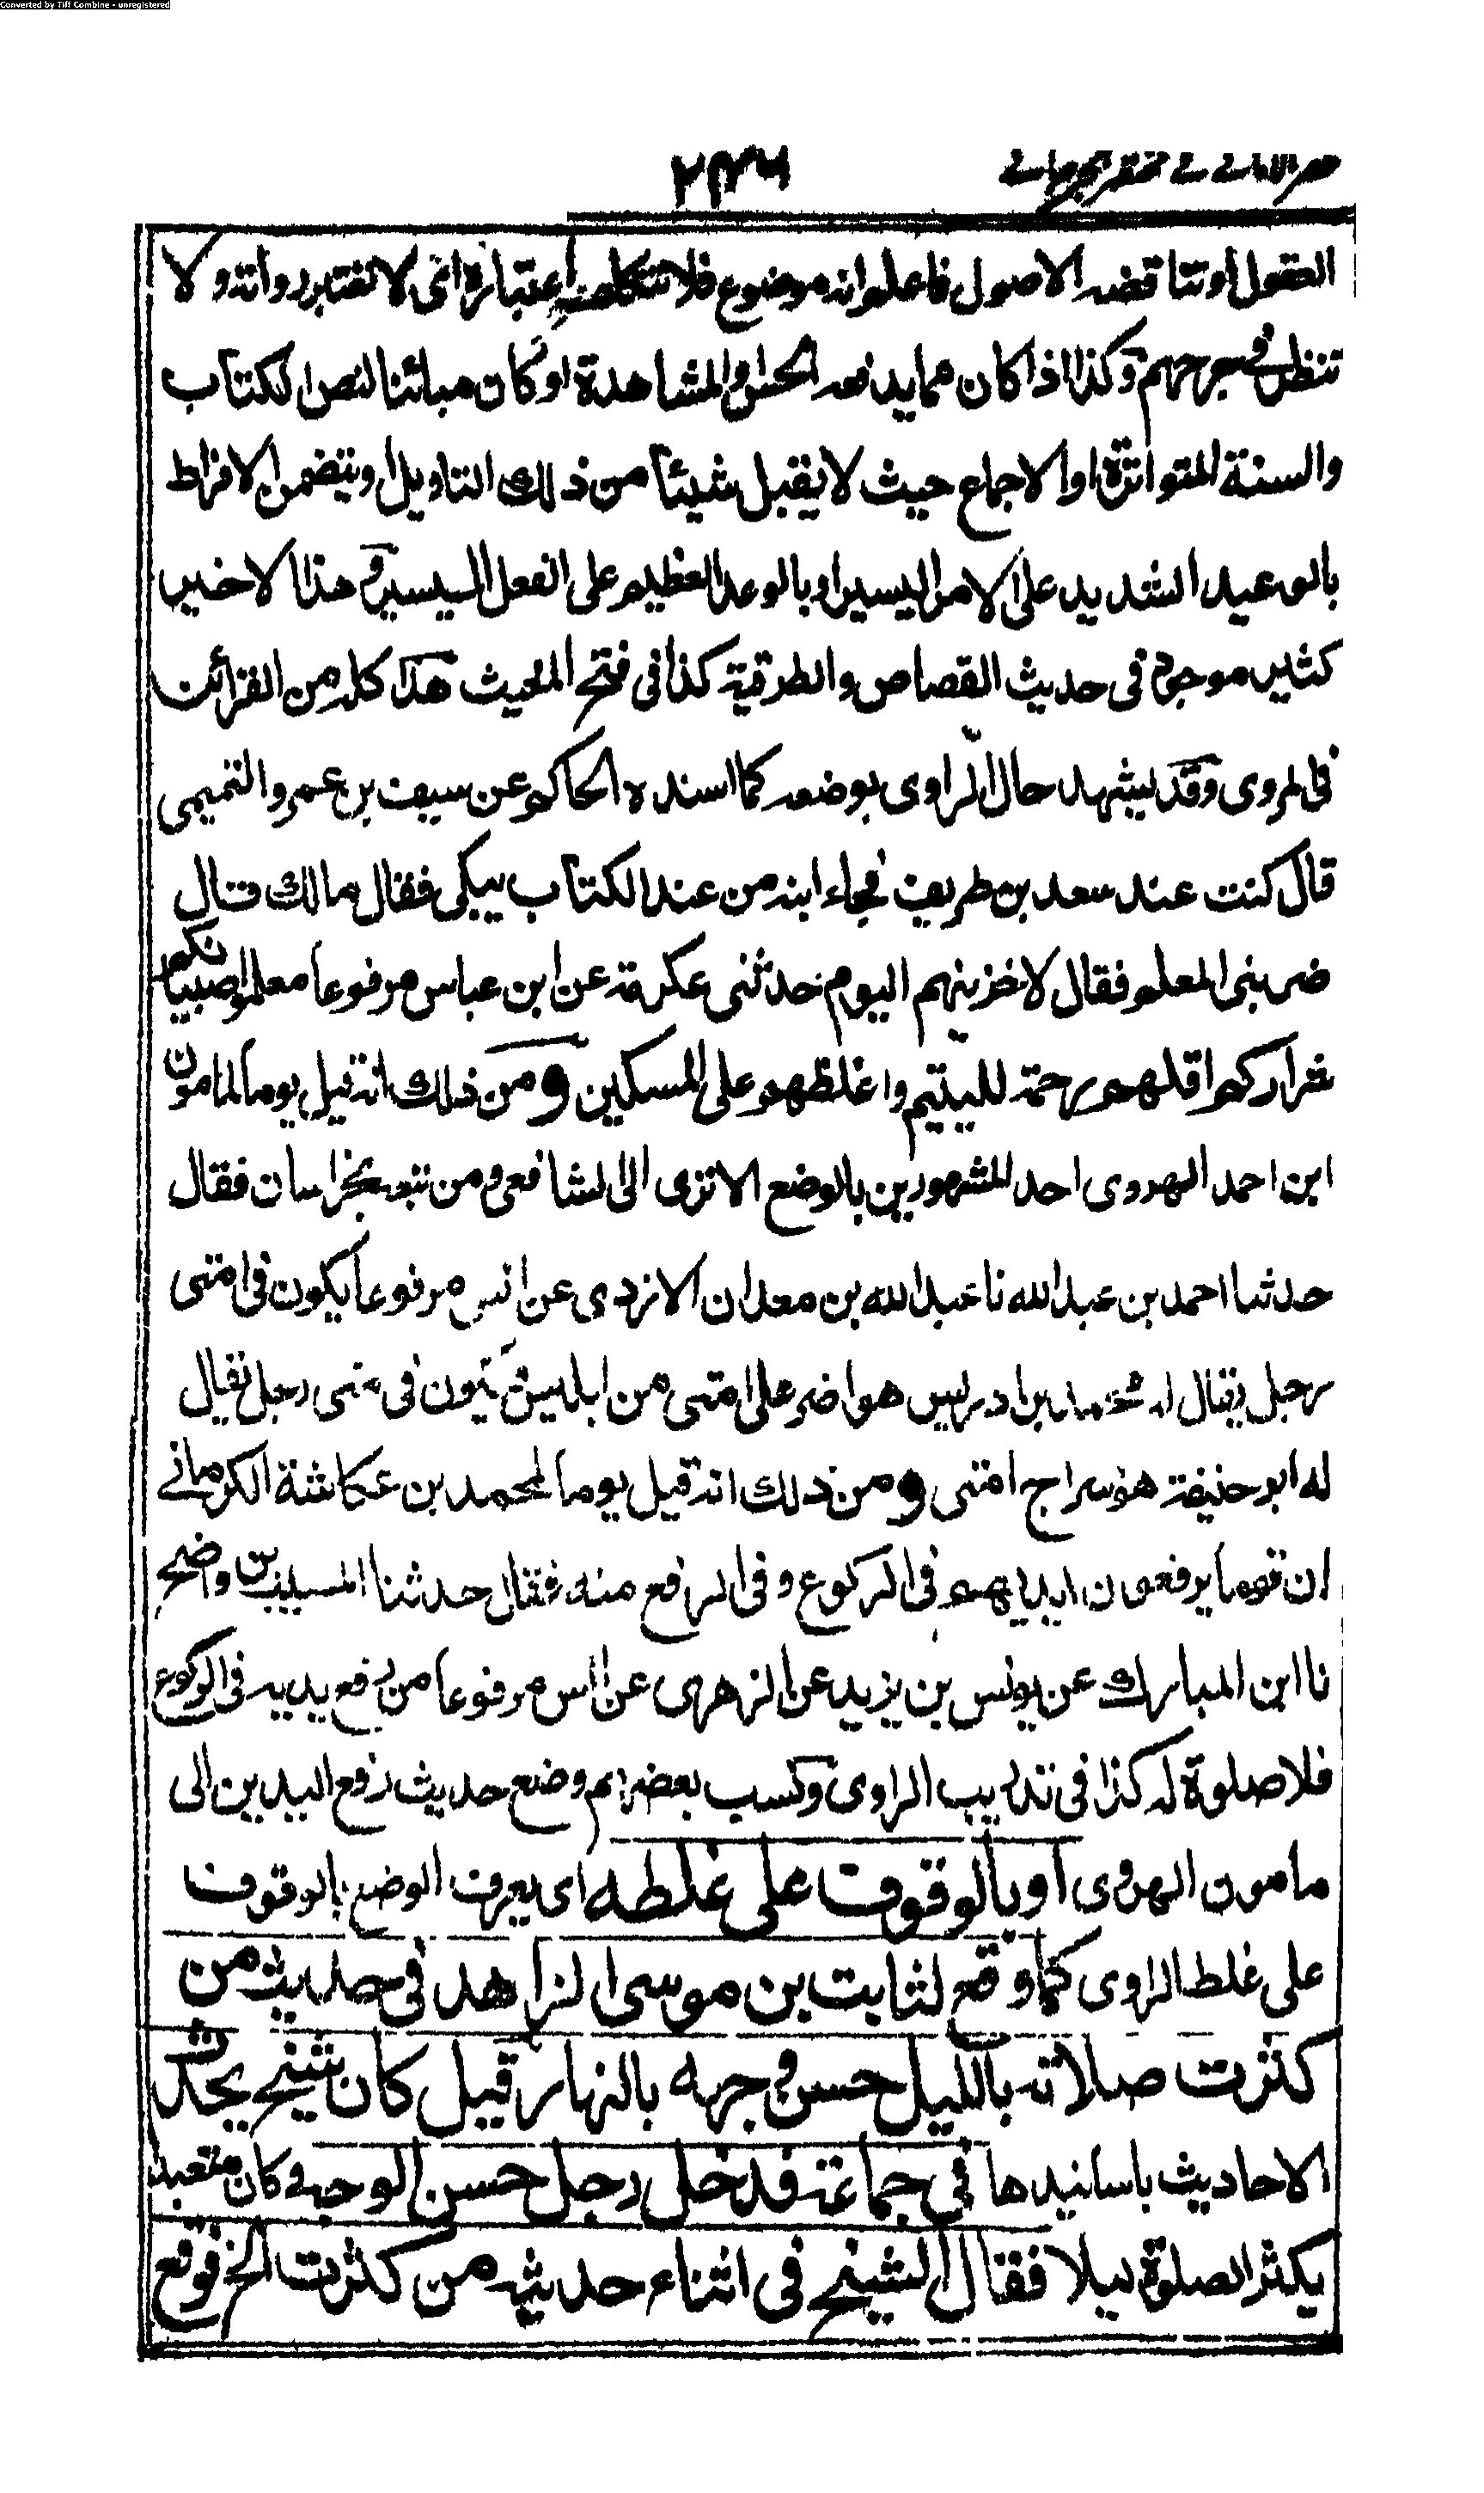 Converted by Tiff Combine - unregistered
ظفر الامانے فے مختصر الجرجانے ٢٣٦
العقول او تناقضه الاصول فاعلم انه موضوع فلا تتكلف اعتباره اى لا تعتبر رواته ولا
تنظر فى جرحهم وكذا اذا كان مما يدفعه الحس والمشاهدة او كان مبائنا لنص الكتاب
والسنة المتواترة او الاجماع حيث لا يقبل شيئا من ذلك التاويل او يتضمن الافراط
بالوعيد الشديد على الامر اليسير او بالوعد العظيم على الفعل اليسير وهذا الاخير
كثير موجود فى حديث القصاص والطرقية كذا فى فتح المغيث هذا كله من القرائن
فى المروى وقد يشهد حال الراوى بوضعه كما اسنده الحاكم عن سيف بن عمرو التميمى
قال كنت عند سعد بن طريف فجاء ابنه من عند الكتاب يبكى فقال مالك قال
ضربنى المعلم فقال لاخزينهم اليوم حدثنى عكرمة عن ابن عباس مرفوعا معلموا صبيانكم
شراركم اقلهم رحمة لليتيم واغلظهم على المسكين ومن ذلك انه قيل يوما لمامون
ابن احمد الهروى احد المشهورين بالوضع الا ترى الى الشافعى ومن تبعه بخراسان فقال
حدثنا احمد بن عبد الله نا عبد الله بن معدان الازدى عن انس مرفوعا يكون فى امتى
رجل يقال له محمد بن ادريس هو اضر على امتى من ابليس ويكون فى امتى رجل يقال
له ابو حنيفة هو سراج امتى ومن ذلك انه قيل يوما لمحمد بن عكاشة الكرمانے
ان قوما يرفعون ايديهم فى الركوع وفى الرفع منه فقال حدثنا المسيب بن واضح
نا ابن المبارك عن يونس بن يزيد عن الزهرى عن انس مرفوعا من رفع يديه فى الركوع
فلا صلوة له كذا فى تدريب الراوى ونسب بعضهم وضع حديث رفع اليدين الى
مامون الهروى او بالوقوف على غلطه اى يعرف الوضع بالوقوف
على غلط الراوى كما وقع لثابت بن موسى الزاهد فى حديث من
كثرت صلاته بالليل حسن وجهه بالنهار قيل كان شيخ يحدث
الاحاديث باسانيدها فى جماعة فدخل رجل حسن الوجه وكان متعبدا
يكثر الصلوة ليلا فقال الشيخ فى اثناء حديثه من كثرت الخ فوقع